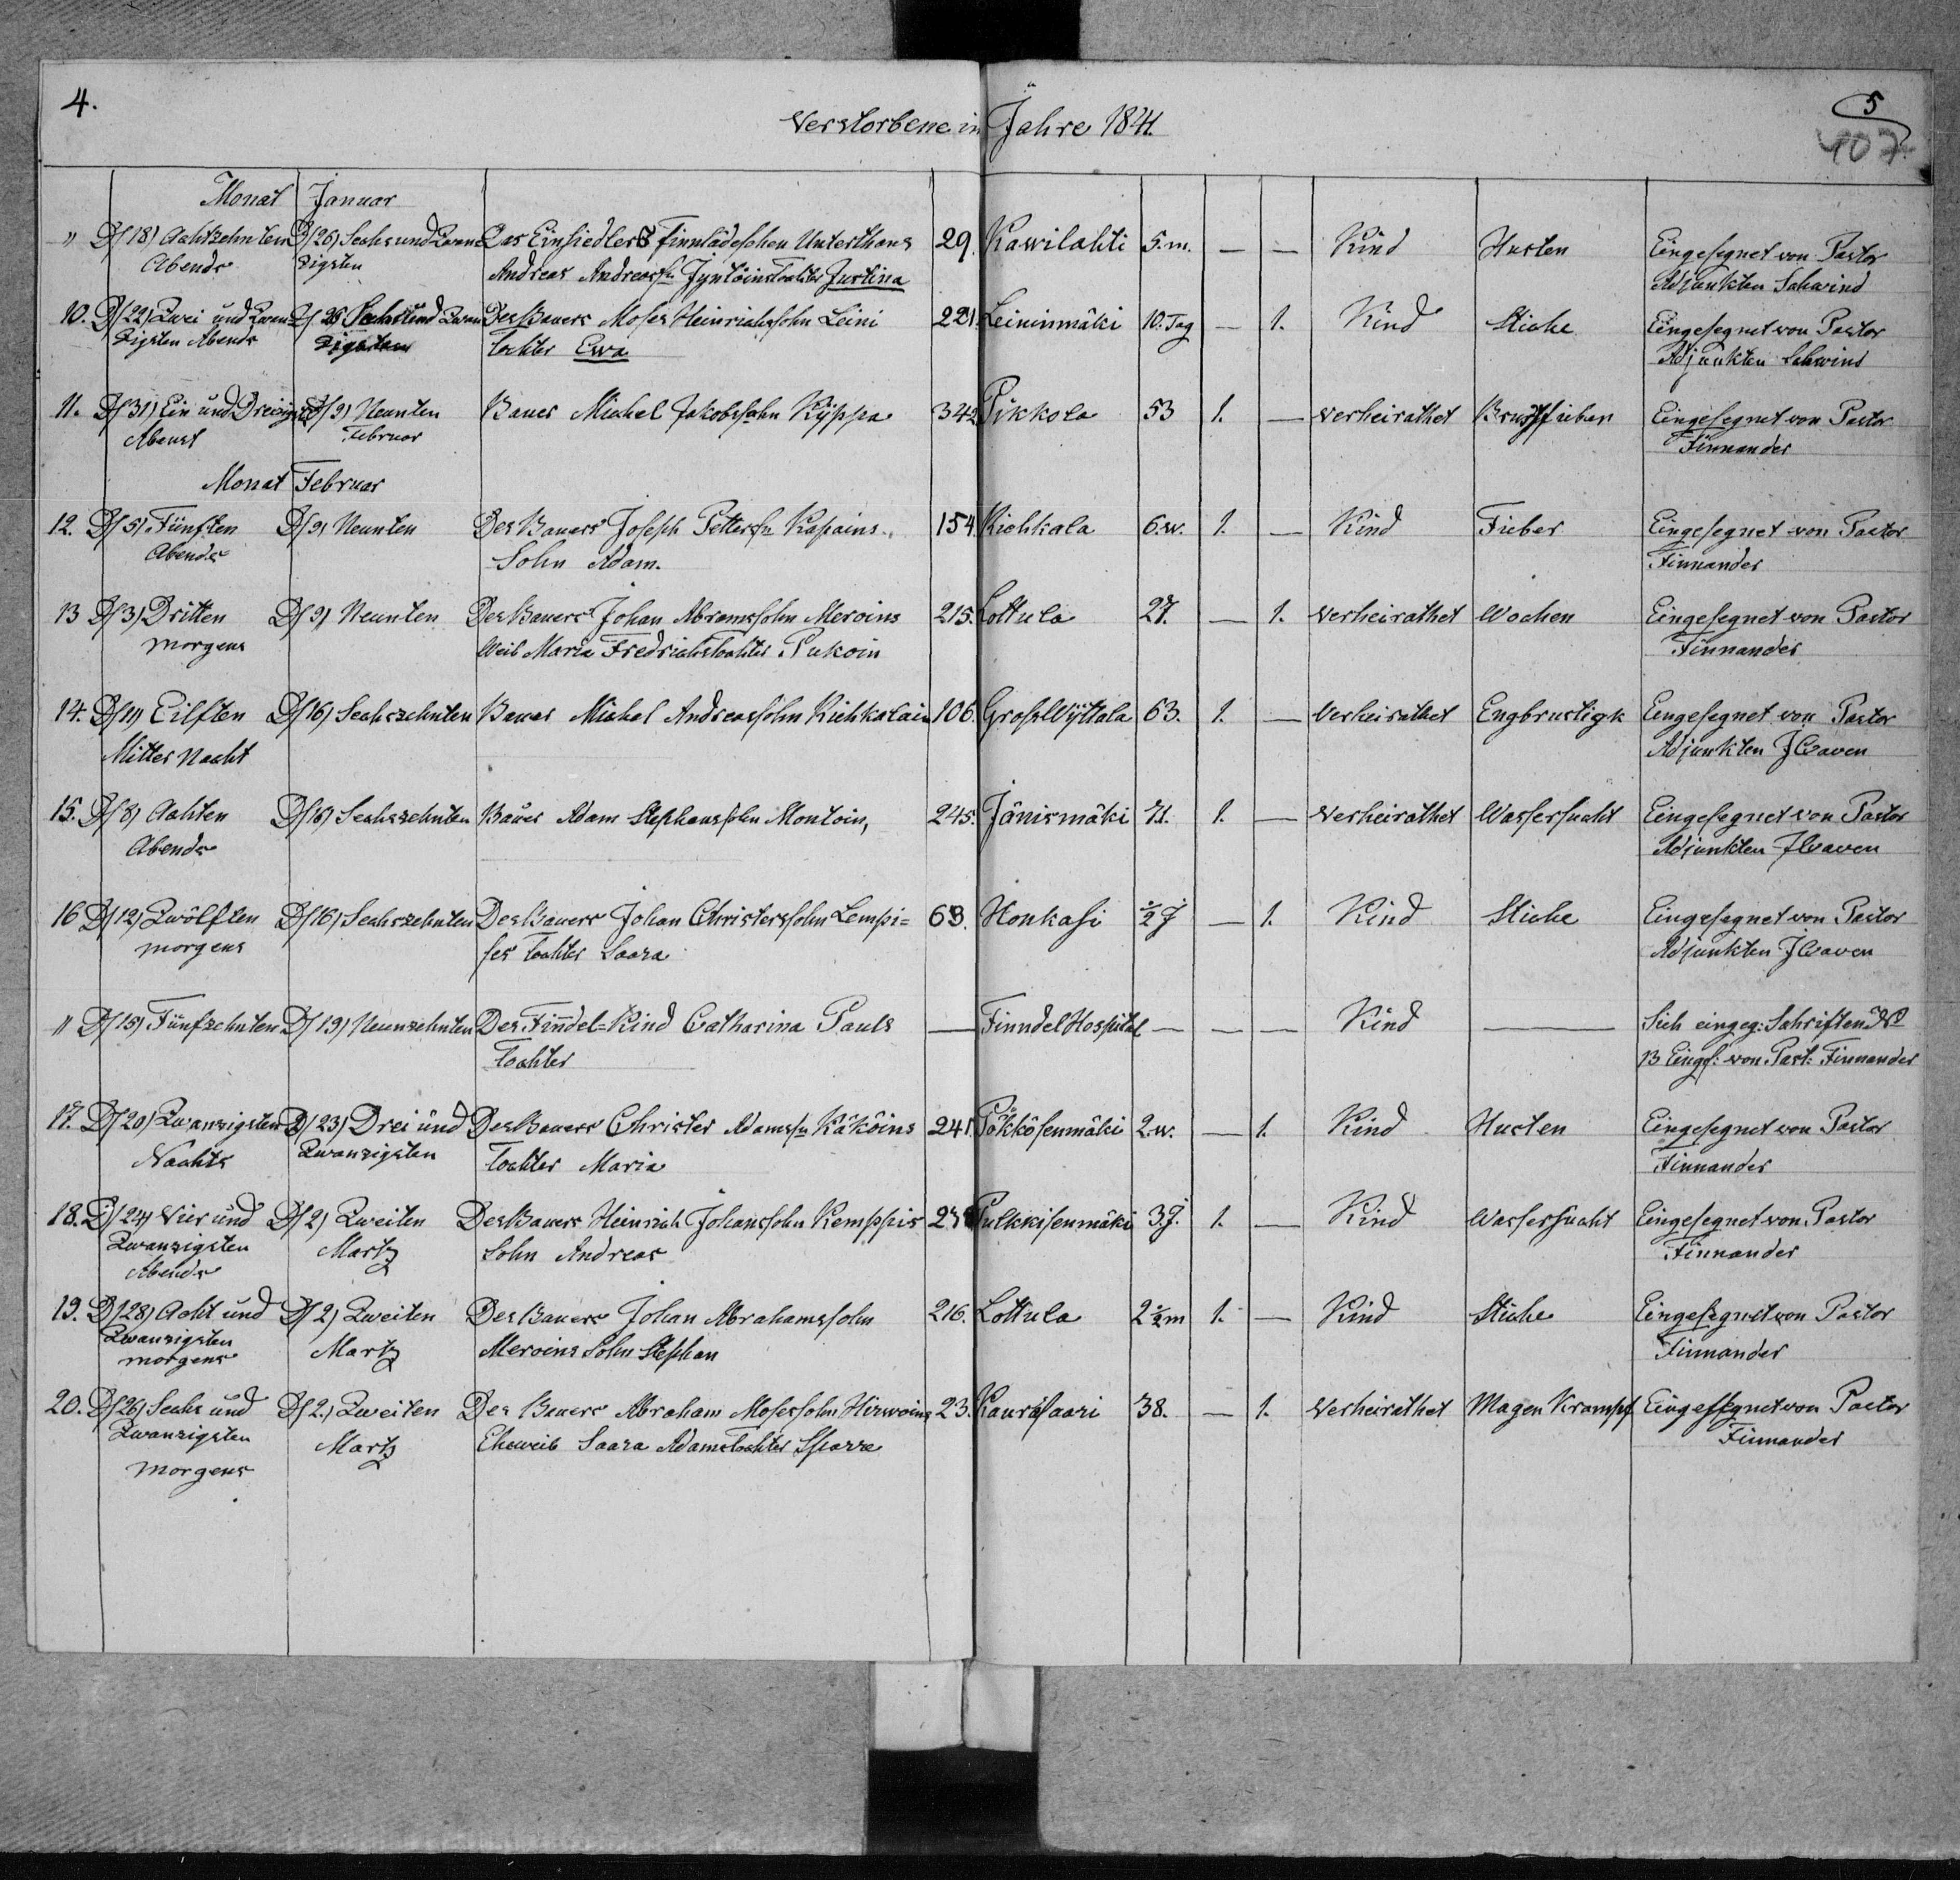 4.
Verstorbene in Jahre 1841.
5
407
Monat Januar
" D/18) Achtzehnten D/26) Sechs und Zwan Das Einsiedlers Finnlädeschen Unterthans 29. Kawilahti 5.m. — — Kind Husten Eingesegnet von Pastor
Abends zigsten Andreas Andreassn Jyntöins Tochter Justina Adjunkten Schwind
10. D/22) Zwei und Zwan= D/26 Sechs und Zwan Des Bauers Moses Heinrichssohn Leini 221. Leininmäki 10. Tag — 1. Kind Stiche Eingesegnet von Pastor
zigsten Abends zigsten Tochter Ewa Adjunkten Schwind
11. D/31) Ein und Dreisigst D/9) Neunten Bauer Michel Jakobssohn Kÿppa 342 Pikkola 53 1. — verheirathet Brustfieber Eingesegnet von Pastor
Abenst Februar Finnander
Monat Februar
12. D/5) Fünften D/9) Neunten Des Bauers Joseph Petterssn Kapains 154. Kiohkala 6.w. 1. — Kind Fieber Eingesegnet von Pastor
Abends Sohn Adam. Finnander
13 D/3) Dritten D/9) Neunten Des Bauers Johan Abramssohn Meroins 215. Lottula 27. — 1. verheirathet Wochen Eingesegnet von Pastor
morgens Weib Maria Fredrichstochter Pukoin Finnander
14. D/11) Eilften D/16) Sechszehnten Bauer Michel Andreassohn Kiehkalain 106. Gross Wÿttala 63. 1. — Verheirathet Engbrustigk Eingesegnet von Pastor
Mitter Nacht Adjunkten JCaven
15. D/8) Achten D/16) Sechszehnten Bauer Adam Stephanssohn Montoin, 245. Jänismäki 71. 1. — verheirathet Wassersucht Eingesegnet von Pastor
Abends Adjunkten JCaven
16 D/12) Zwölften D/16) Sechszehnten Des Bauers Johan Christerssohn Lempi= 63. Honkasi ½ J — 1. Kind Stiche Eingesegnet von Pastor
morgens ses Tochter Saara Adjunkten JCaven
" D/15) Fünfzehnten D/19) Neunzehnten Des Finndel=Kind Catharina Pauls — Finndel Hospital — — — Kind — Sieh eingeg: Schriften No
Tochter 13 Einges: von Past: Finnander
17. D/20) Zwanzigsten D/23) Drei und Des Bauers Christer Adamssn Käköins 241. Pökkösenmäki 2.w. — 1. Kind Husten Eingesegnet von Pastor
Nachts Zwanzigsten Tochter Maria Finnander
18. D/24) Vier und D/2) Zweiten Des Bauers Heinrich Johanssohn Kemppis Pulkkisenmäki 3.J. 1. — Kind Wassersucht Eingesegnet von Pastor
Zwanzigsten Martz Sohn Andreas Finnander
Abends
19. D/28) Acht und D/2) Zweiten Des Bauers Johan Abrahamssohn 216. Lottula 2½m 1. — Kind Stiche Eingesegnet von Pastor
Zwanzigsten Martz Meroins Sohn Stephan Finnander
morgens
20. D/26) Sechs und D/2.) Zweiten Des Bauers Abraham Mosessohn Hirwoins 23. Kauräsaari 38. — 1. Verheirathet Magen Krampf Eingesegnet von Pastor
Zwanzigsten Martz Eheweib Saara Adamstochter Sparra Finnander
morgens